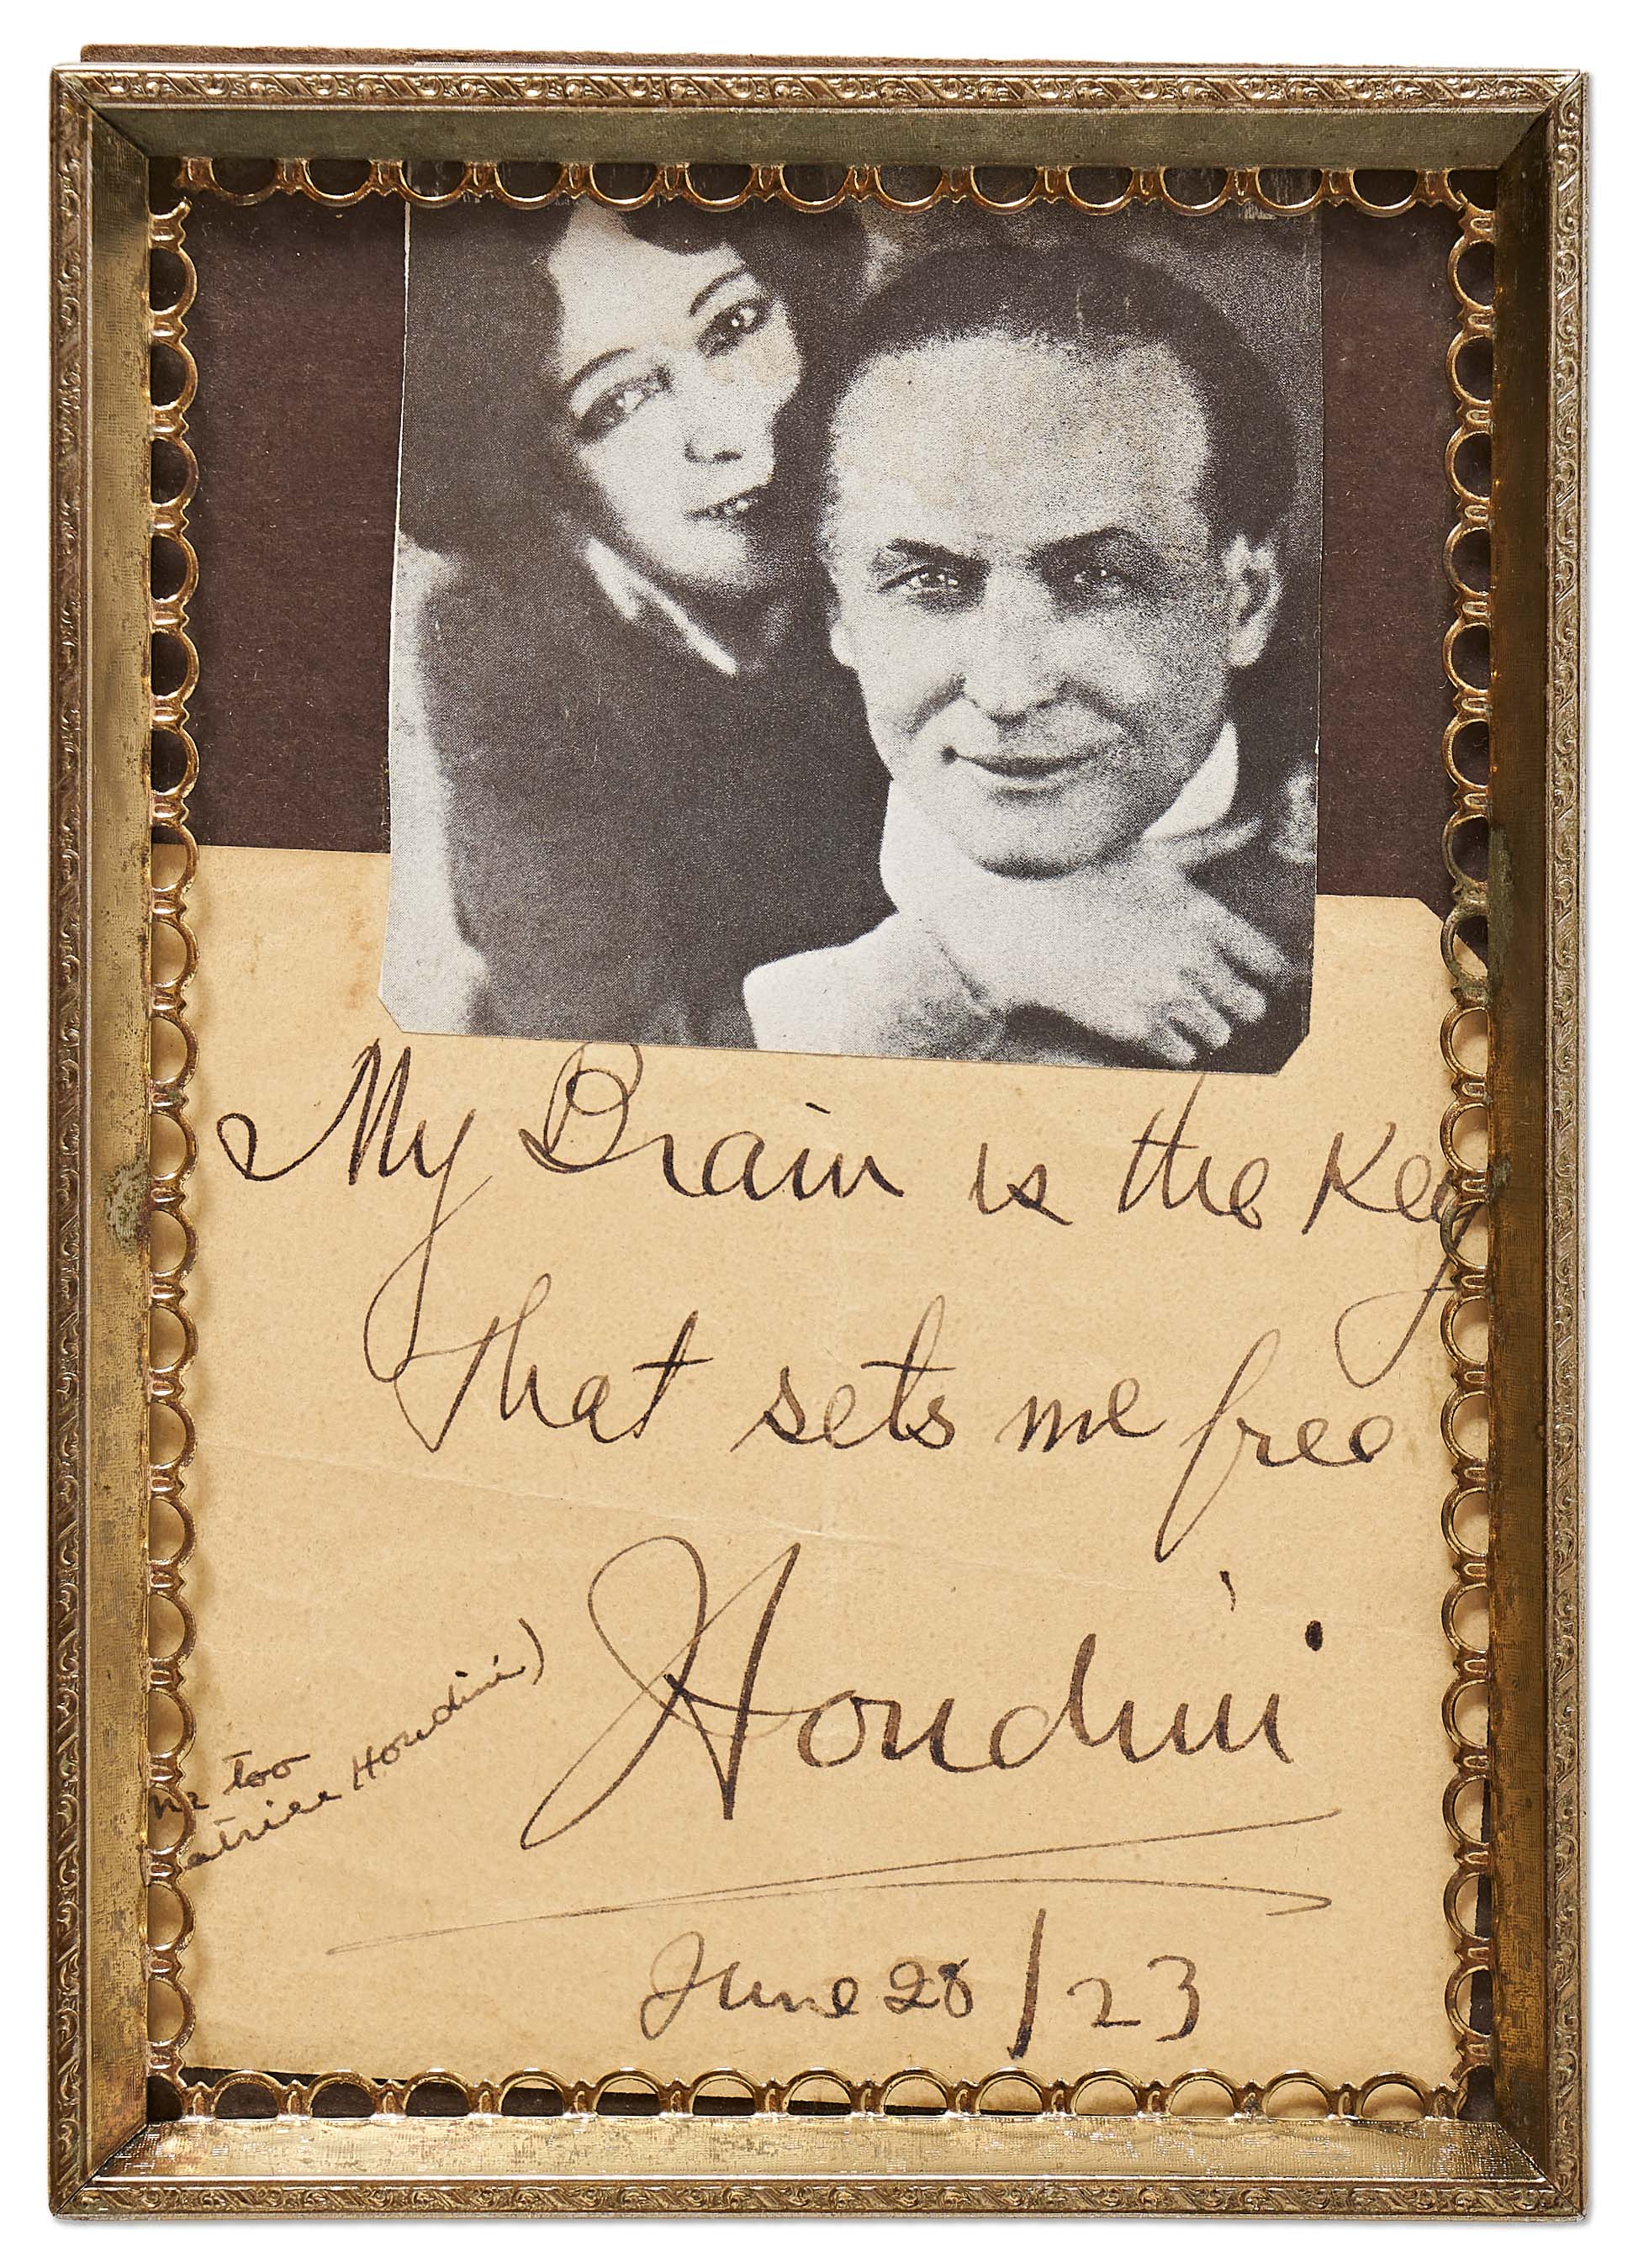 My Brain is the Key
that sets me free
Houdini
too
Houdini)
June 28/23